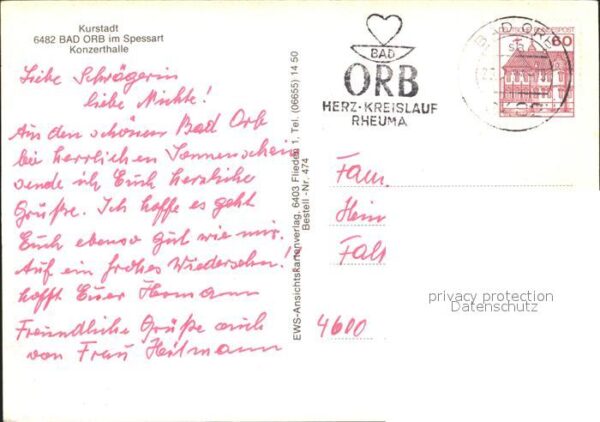 Kurstadt
6482 BAD ORB im Spessart
Konzerthalle
Liebe Schwägerin
liebe Nichte!
Aus dem schönen Bad Orb
bei herrlichen Sonnenschein
sende ich Euch herzliche
Grüße. Ich hoffe es geht
Euch ebenso gut wie mir.
Auf ein frohes Wiedersehen!
hofft Euer Hermann
Freundliche Grüße auch
von Frau Heitmann
EWS-Ansichtskartenverlag, 6403 Flieden 1, Tel. (06655) 14 50
Bestell-Nr. 474
BAD
ORB
HERZ-KREISLAUF
RHEUMA
BAD ORB
DEUTSCHE BUNDESPOST
60
Fam.
Hein
Falk
4600
privacy protection
Datenschutz